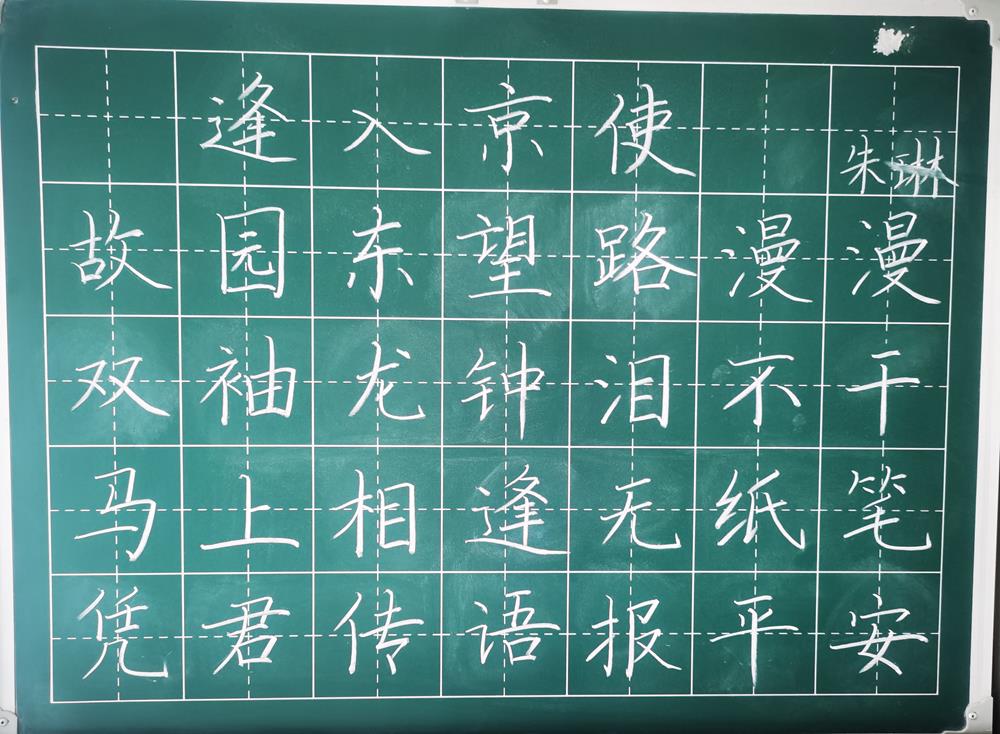 逢入京使
朱琳
故园东望路漫漫
双袖龙钟泪不干
马上相逢无纸笔
凭君传语报平安